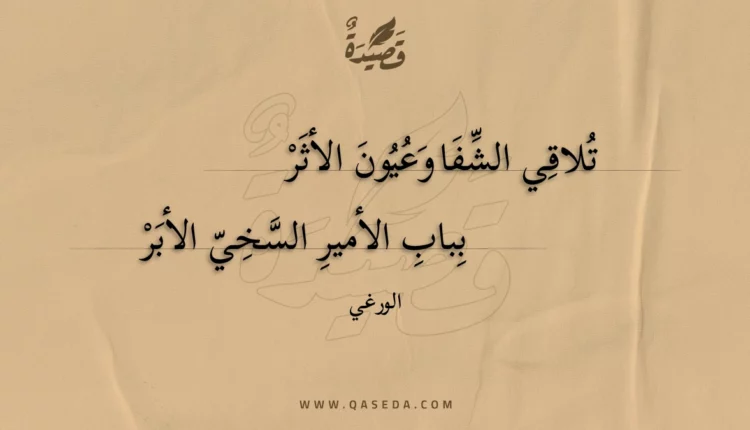 قَصِيْدَةٌ
تُلاقِي الشِّفَا وَعُيُونَ الأثَرْ
بِبابِ الأميرِ السَّخِيّ الأبَرْ
الورغي
WWW.QASEDA.COM